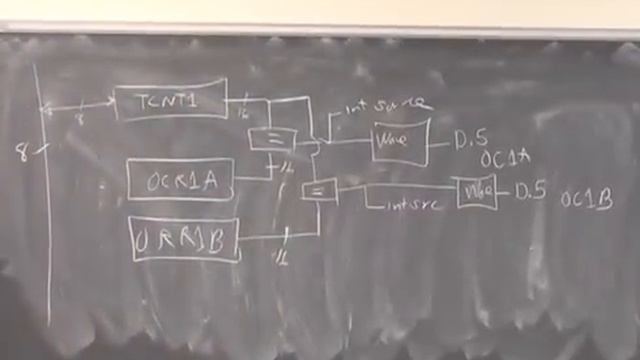 TCNT1
8
16
int source
=
Wave
D.5
OC1A
8
16
OCR1A
=
int src
D.5
OC1B
16